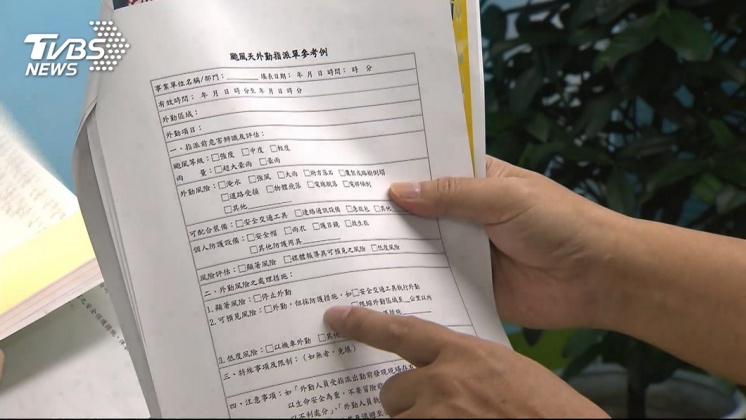 TVBS
NEWS
颱風天外勤指派單參考例
事業單位名稱/部門：________ 填表日期： 年 月 日 時間： 時 分
有效時間： 年 月 日 時 分至 年 月 日 時 分
外勤區域：
外勤項目：
一、指派前危害辨識及評估：
颱風等級：□強度 □中度 □輕度
雨 量：□超大豪雨 □豪雨
外勤風險：□淹水 □強風 □大雨 □坍方落石 □
□道路受損 □物體飛落 □電線脫落 □電桿傾倒
□其他
可配合裝備：□安全交通工具 □連絡通訊設備 □急救包 □其他
個人防護設備：□安全帽 □雨衣 □護目鏡 □救生衣
□其他防護用具
風險評估：□顯著風險 □媒體報導具可預見之風險 □低度風險
二、外勤風險之處理措施：
1.顯著風險：□停止外勤
2.可預見風險：□外勤，但採防護措施，如□安全交通工具執行外勤
□限縮外勤區域至__公里以內
3.低度風險：□以機車外勤 □其他
三、特殊事項及限制：（如無者，免填）
四、注意事項：如「外勤人員受指派出勤前發現現場存在
以生命安全為重，不要冒險前
以不利處分」、「外勤人員執